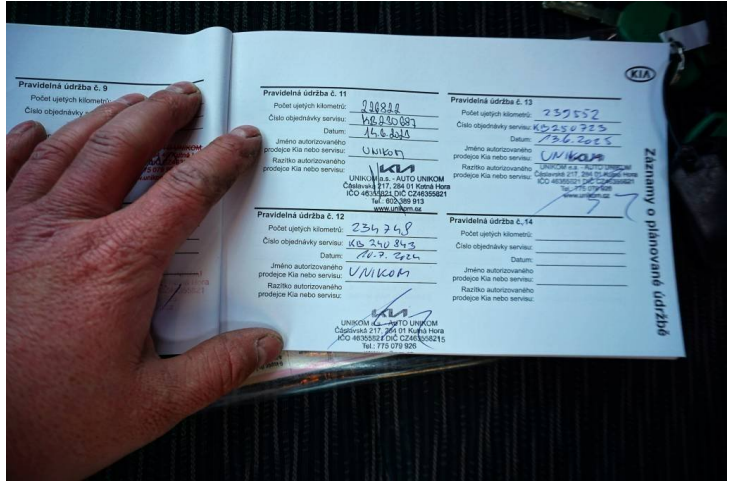 KIA
Záznamy o plánované údržbě
Pravidelná údržba č. 9
Počet ujetých kilometrů:
Číslo objednávky
Pravidelná údržba č. 11
Počet ujetých kilometrů: 228822
Číslo objednávky servisu: KB230687
Datum: 14.6.2023
Jméno autorizovaného
prodejce Kia nebo servisu: UNIKOM
Razítko autorizovaného
prodejce Kia nebo servisu:
KIA
UNIKOM a.s. - AUTO UNIKOM
Čáslavská 217, 284 01 Kutná Hora
IČO 46355821 DIČ CZ46355821
Tel.: 602 389 913
www.unikom.cz
Pravidelná údržba č. 12
Počet ujetých kilometrů: 234748
Číslo objednávky servisu: KB 240 843
Datum: 10.7. 2024
Jméno autorizovaného
prodejce Kia nebo servisu: UNIKOM
Razítko autorizovaného
prodejce Kia nebo servisu:
KIA
UNIKOM a.s. - AUTO UNIKOM
Čáslavská 217, 284 01 Kutná Hora
Tel.: 775 079 926
Pravidelná údržba č. 13
Počet ujetých kilometrů: 239552
Číslo objednávky servisu: KB250723
Datum: 13.6.2025
Jméno autorizovaného
prodejce Kia nebo servisu: UNIKOM
Razítko autorizovaného
prodejce Kia nebo servisu:
KIA
UNIKOM a.s. - AUTO UNIKOM
Čáslavská 217, 284 01 Kutná Hora
IČO 46355821 DIČ CZ46355821
Tel.: 775 079 926
www.unikom.cz
Pravidelná údržba č. 14
Počet ujetých kilometrů:
Číslo objednávky servisu:
Datum:
Jméno autorizovaného
prodejce Kia nebo servisu:
Razítko autorizovaného
prodejce Kia nebo servisu: